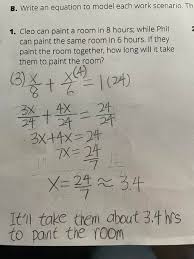 B. Write an equation to model each work scenario. Th
1. Cleo can paint a room in 8 hours; while Phil
can paint the same room in 6 hours. If they
paint the room together, how long will it take
them to paint the room?
(3) x/8 + x/6 (4) = 1(24)
3x/24 + 4x/24 = 24/24
3x+4x=24
7x = 24/7
x = 24/7 ≈ 3.4
It'll take them about 3.4 hrs
to paint the room